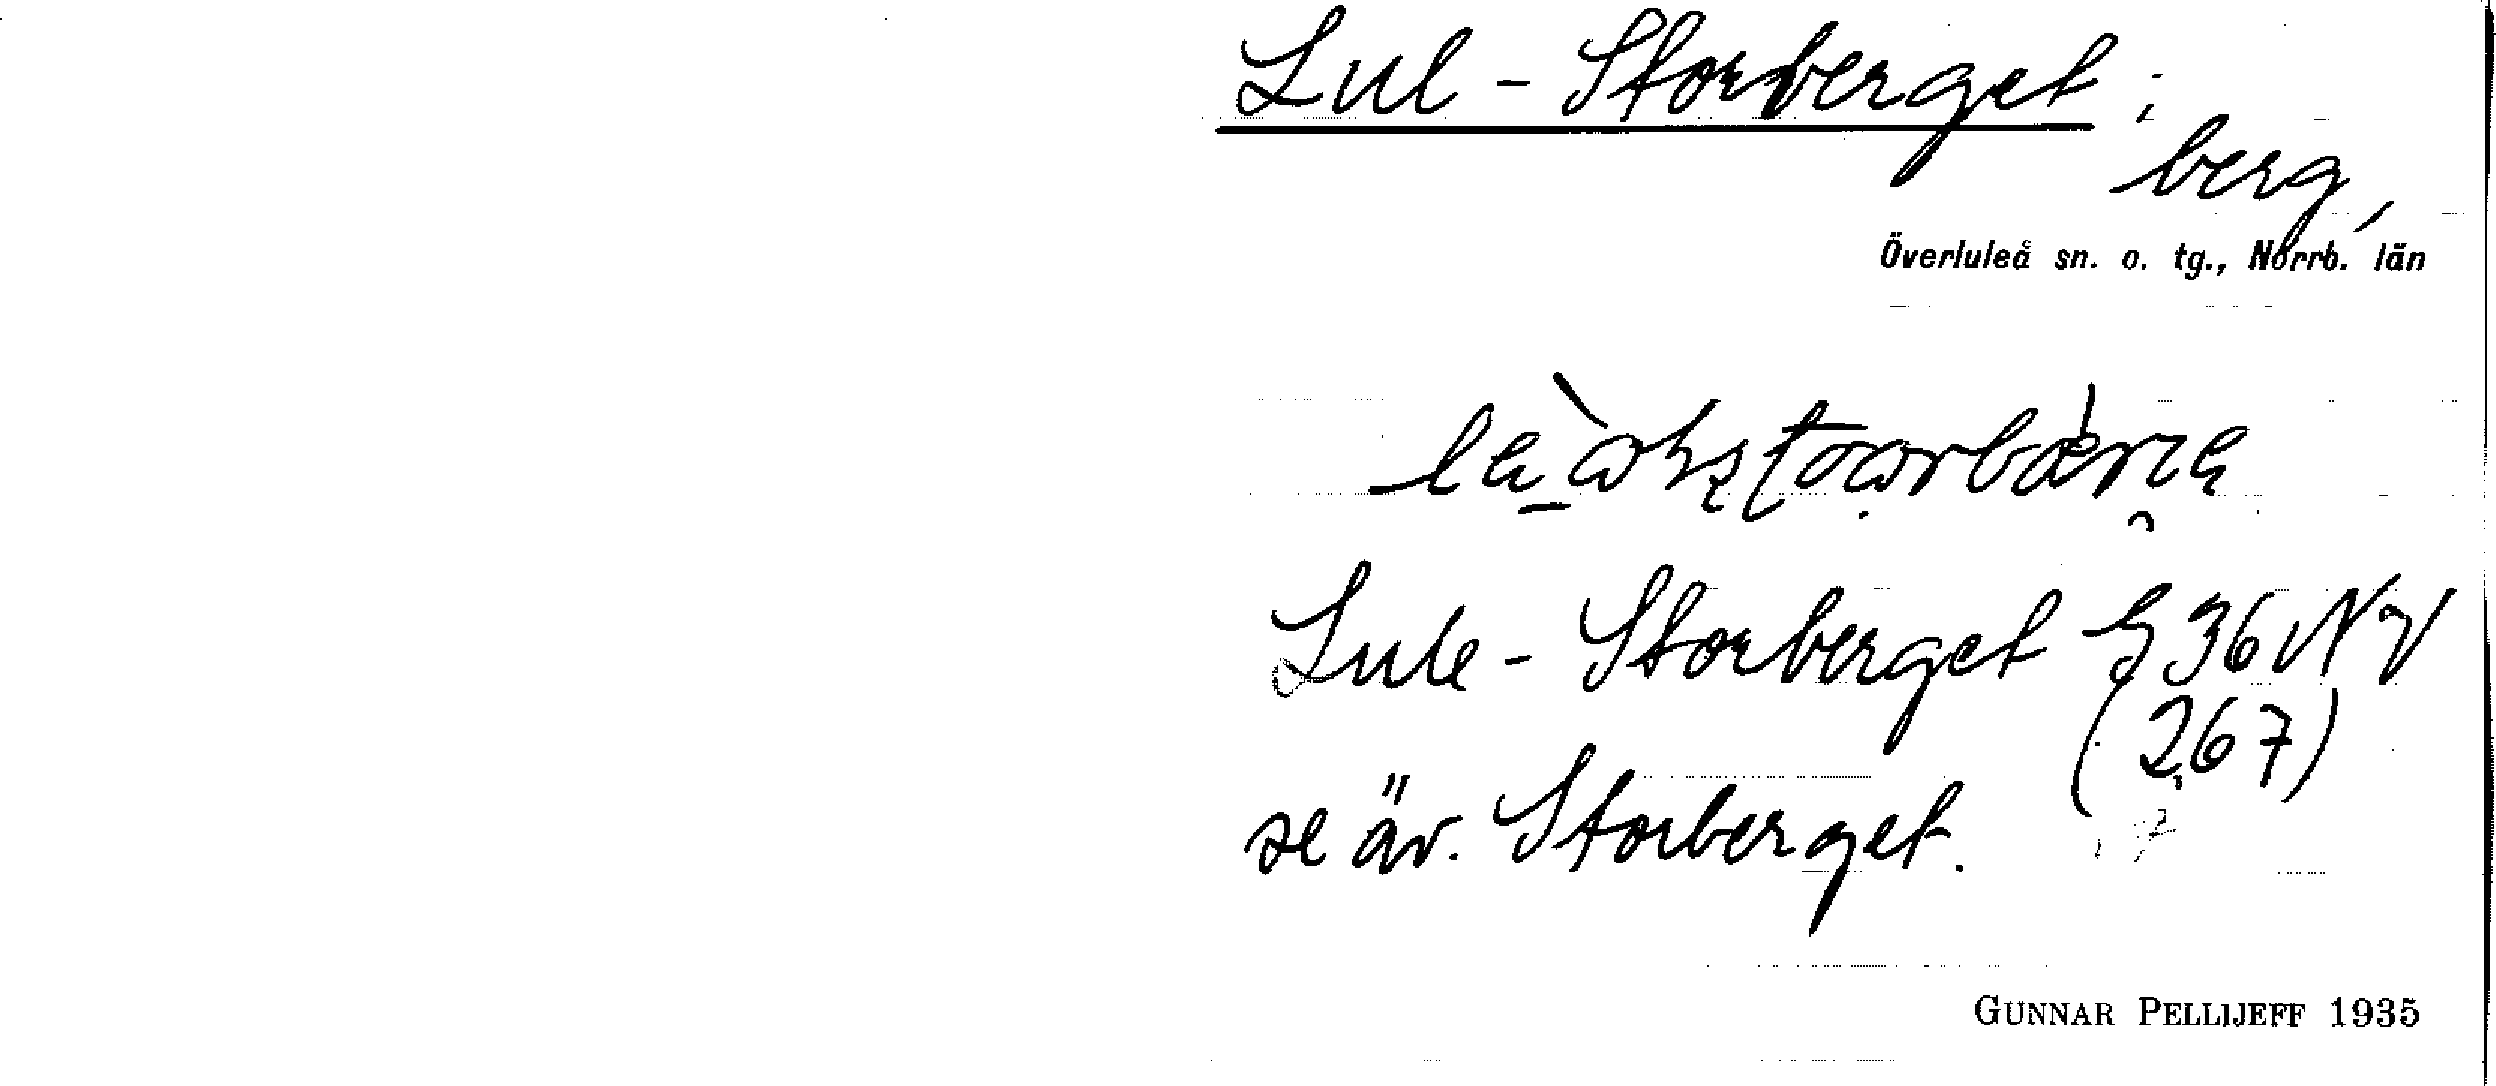 Lul-Storberget;
berg,
Överluleå sn. o. tg., Norrb. län
Lule-Storberget G36NV
(267)
se äv. Storberget.
GUNNAR PELLIJEFF 1935